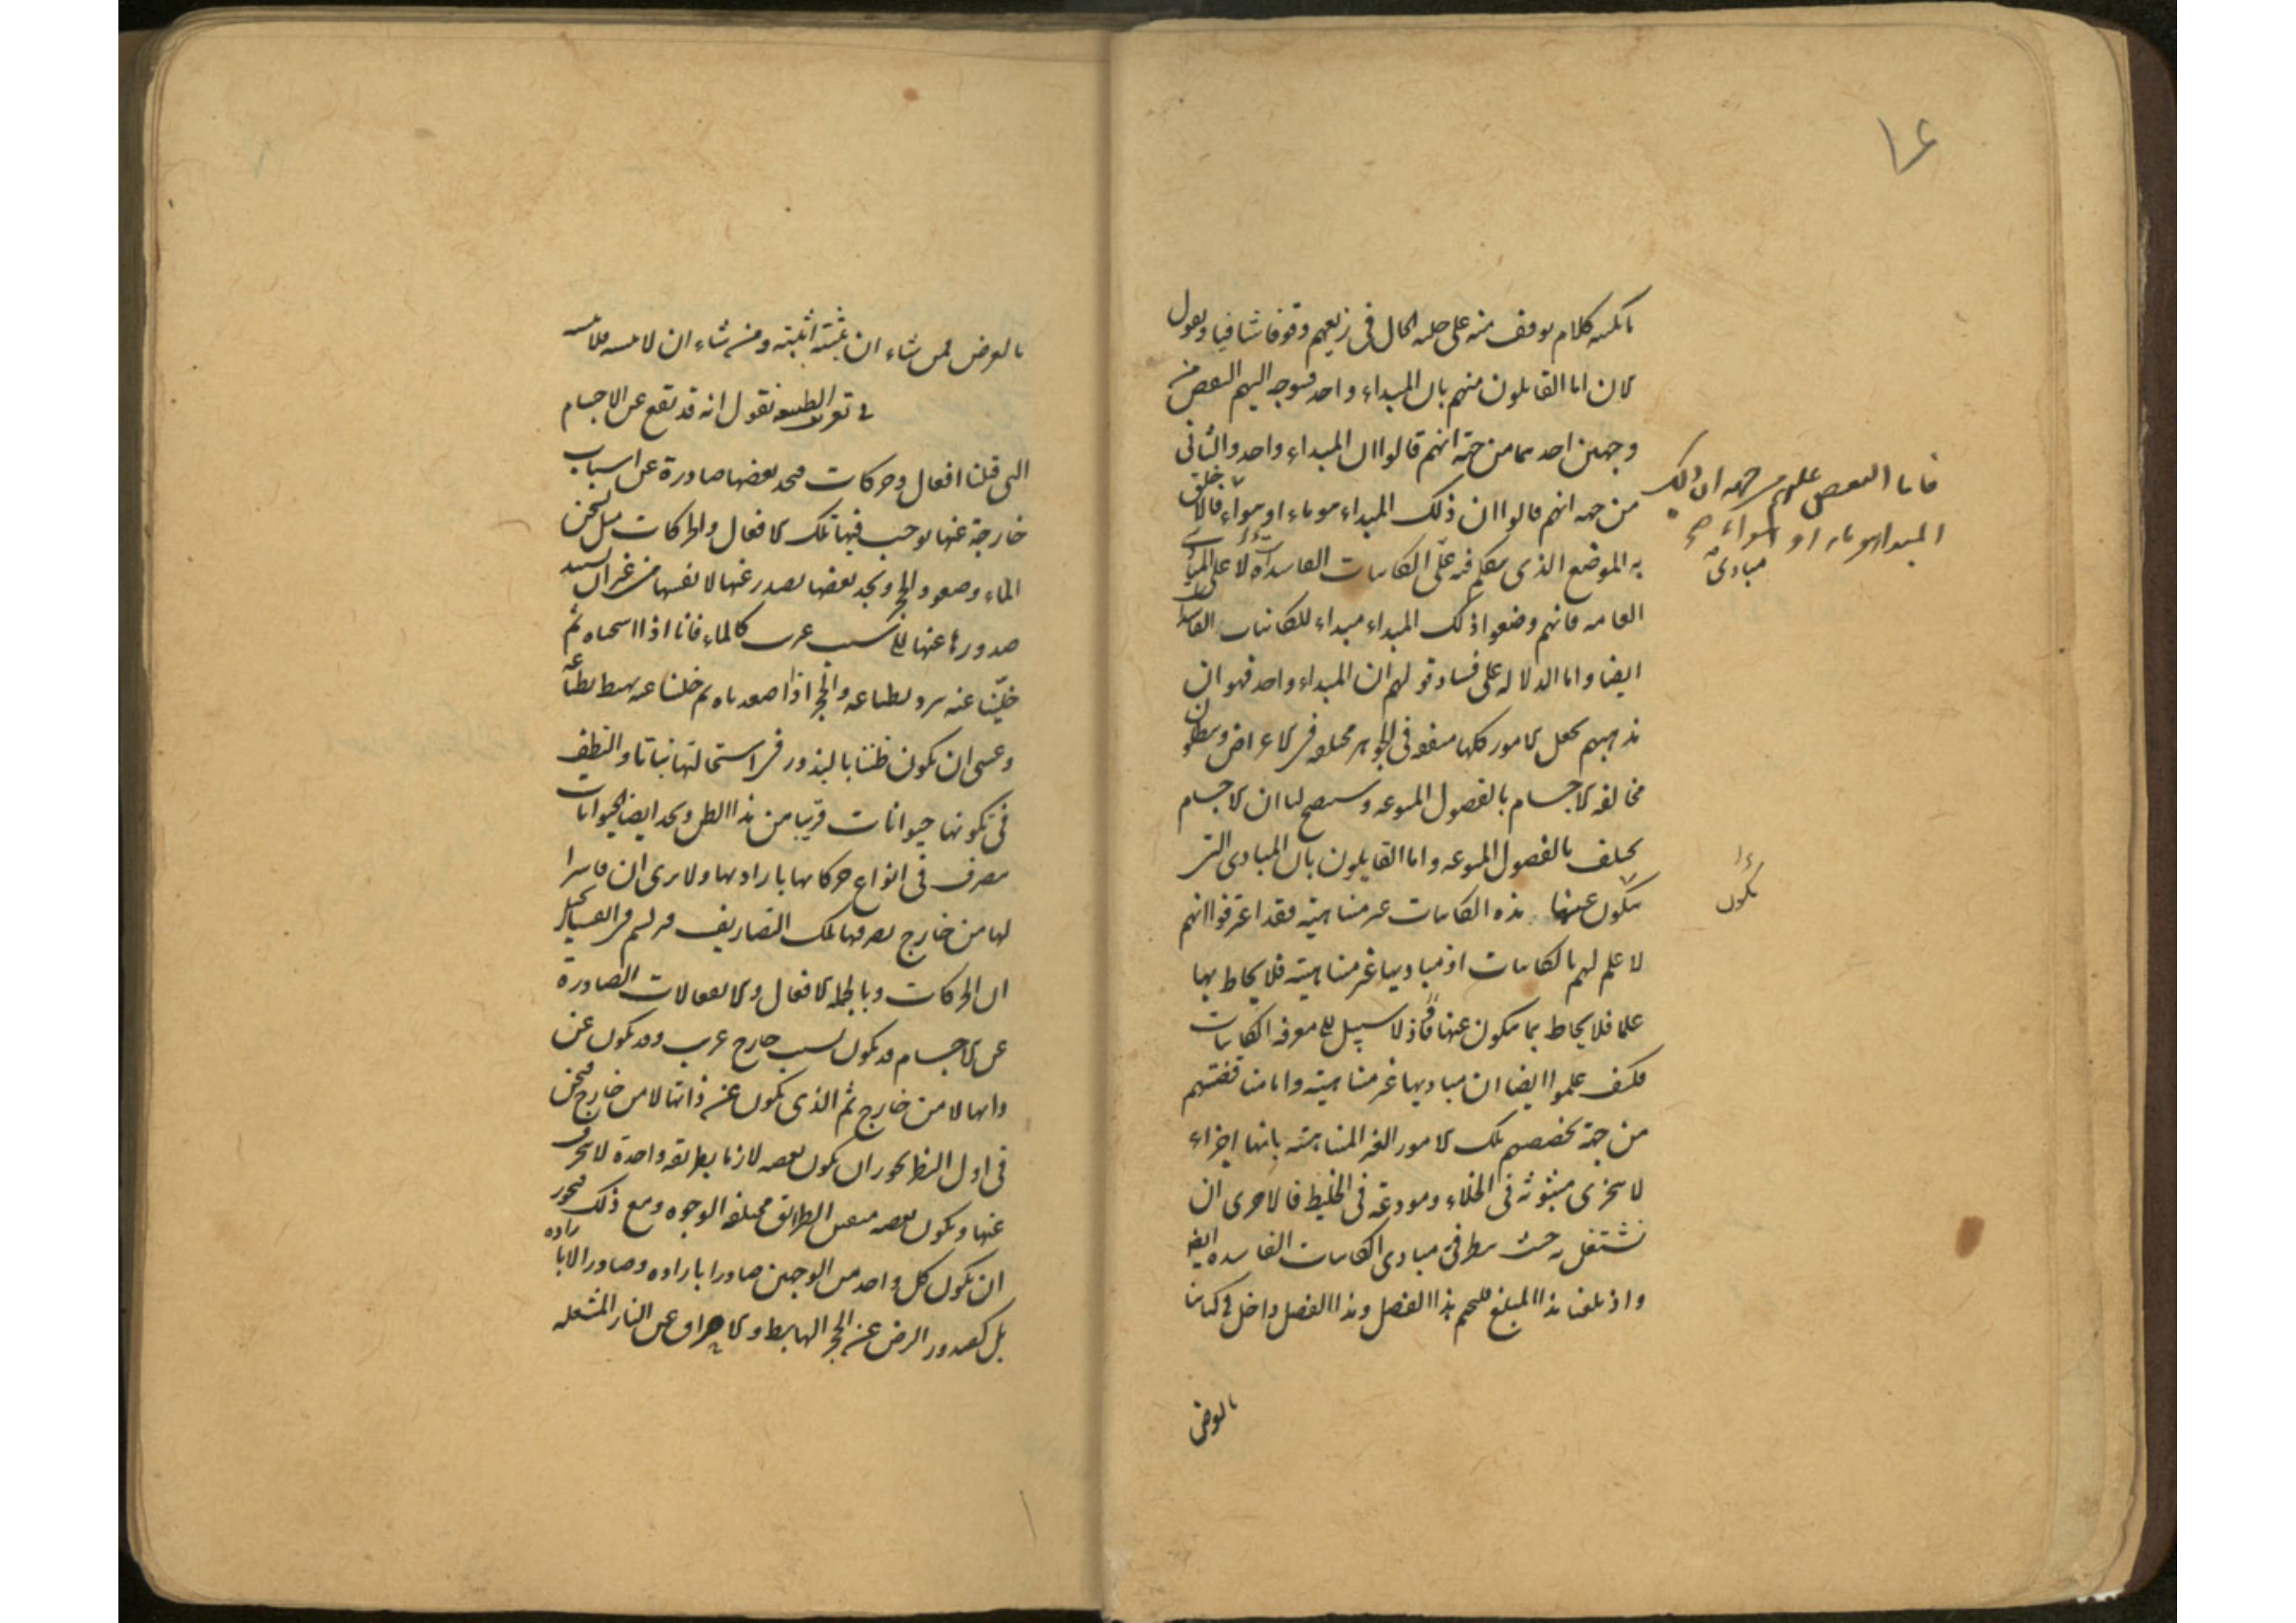 ۱۶
نأتيه كلام يوقف منه على جلية الحال فى زيغهم وقوفا شافيا ويقول
الان اما القايلون منهم بان المبداء واحد فيتوجه اليهم النقض من
وجهين احدهما من جهة انهم قالوا ان المبداء واحد والثانى
من جهه انهم قالوا ان ذلك المبداء هو ماء او هواء فالاخلق
به الموضع الذى يتكلم فيه على الكاينات الفاسدات لا على المبادى
العامه فانهم وضعوا ذلك المبداء مبداء للكاينات الفاسدة
ايضا واما الدلاله على فساد قولهم ان المبداء واحد فهو ان
مذهبهم يجعل الامور كلها متفقه فى الجوهر مختلفه فى الاعراض ويبطلون
مخالفه الاجسام بالفصول المنوعه وسيتضح لنا ان الاجسام
تختلف بالفصول المنوعه واما القايلون بان المبادى التى
يتكون عنها هذه الكاينات غير متناهية فقد اعترفوا انهم
لا علم لهم بالكاينات اذ مباديها غير متناهية فلا يحاط بها
علما فلا يحاط بما يتكون عنها واذ لا سبيل الى معرفه الكاينات
فكيف علموا ايضا ان مباديها غير متناهية واما مناقضتهم
من جهة تخصيصهم تلك الامور الغير المتناهية بانها اجزاء
لا يتجزى مبثوثة فى الخلاء ومودعة فى الخليط فالاحرى ان
نشتغل به حيث ينظر فى مبادى الكاينات الفاسده ايضا
واذ بلغنا هذا المبلغ فلنختم هذا الفصل وهذا الفصل داخل فى كتابنا
بالعرض
فاما النقض عليهم من جهه ان ذلك
المبدا هو ماء او هواء صح
مبادى
تكون
بالعرض فمن شاء ان يثبته اثبته ومن شاء ان لا يثبته فلا يثبته
فى تعريف الطبيعه نقول انه قد تقع عن الاجسام
التى قبلنا افعال وحركات فنجد بعضها صادرة عن اسباب
خارجة عنها يوجب فيها تلك الافعال والحركات مثل تسخن
الماء وصعود الحجر ونجد بعضها يصدر عنها لانفسها من غير ان يستند
صدورها عنها الى سبب غريب كالماء فانا اذا اسخناه ثم
خلّينا عنه يبرد بطباعه والحجر اذا اصعدناه ثم خلينا عنه يهبط بطباعه
وعسى ان يكون ظننا بالبذور فى استحالتها نباتا والنطف
فى تكونها حيوانات قريبا من هذا الظن ونجد ايضا الحيوانات
يتصرف فى انواع حركاتها بارادتها ولا نرى ان قاسرا
لها من خارج يصرفها تلك التصاريف فيرتسم فى انفسنا تخيل
ان الحركات وبالجملة الافعال والانفعالات الصادرة
عن الاجسام قد يكون بسبب خارج غريب وقد يكون عن
ذاتها لا من خارج ثم الذى يكون عن ذاتها لا من خارج فنحن
فى اول النظر نجوز ان يكون بعضه لازما بطريقه واحدة لا ينحرف
عنها ويكون بعضه متفنن الطرائق مختلفه الوجوه ومع ذلك فنجوز
ان يكون كل واحد من الوجهين صادرا باراده وصادرا لا باراده
بل كصدور الرض عن الحجر الهابط والاحراق عن النار المشتعله